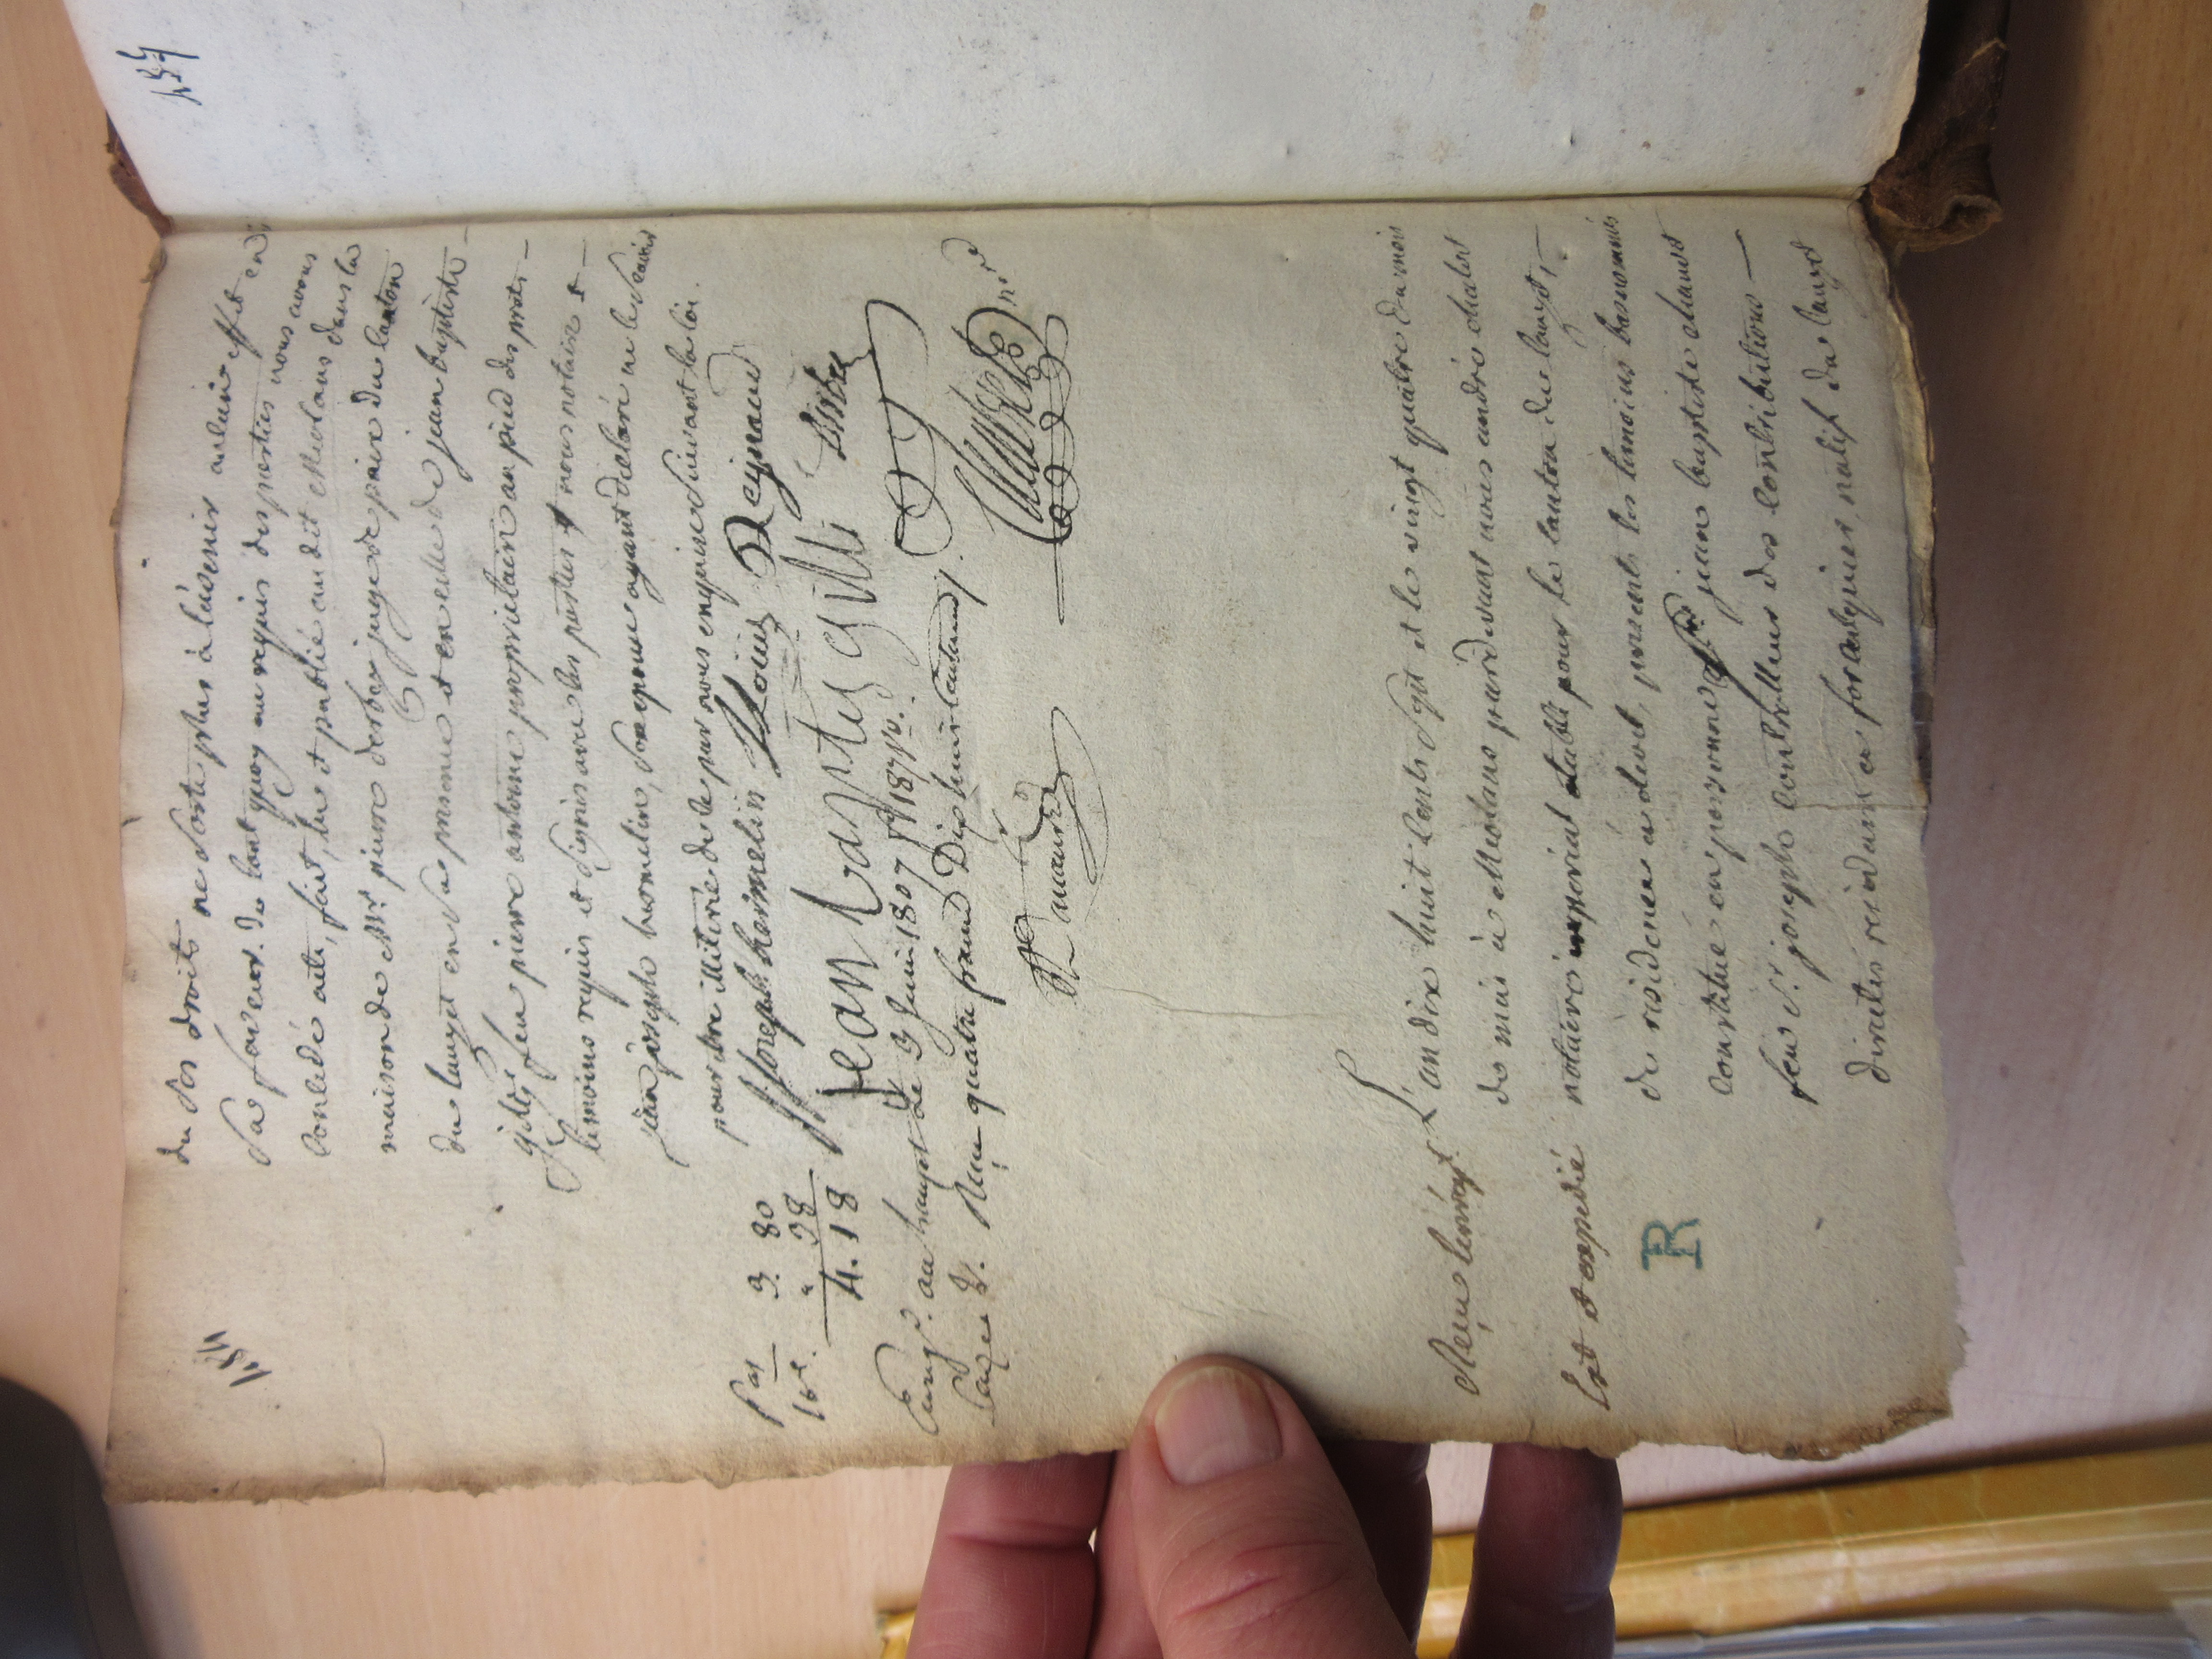 du ses droits ne sorte plus à l'avenir aulcun effet en
sa faveur. De tout quoy au requis des parties nous avons
concédé acte, fait, lu et publié au dit Meolans dans la
maison de Mr. pierre derbez juge de paix du canton
du lauzet en sa presence et en celle de jean baptiste
gilly feu pierre antoine proprietaire au pied des prats
temoins requis et signés avec les parties et nous notaire
jean joseph hermelin, son epouse ayant déclaré ne le savoir
pour etre illitérée de ce par nous enquise suivant la loi.
Par 3. 80
10e. " 38
4. 18
J. Joseph hermelin Louis Reynaud
Jean baptiste gilli Derbez
nre
Enregé. au Lauzet Le 3 Juin 1807 fo 187 Vo.
Case 8. Reçu quatre francs Dix huit Centimes
154
L'an dix huit cents sept et le vingt quatre du mois
de mai à Meolans pardevant nous andré chabot
notaire imperial etabli pour le canton du lauzet,
de residence a dict, presents les temoins bas nommés
constitué en personne Sr. jean baptiste chauvet
feu Sr. joseph controlleur des contributions
directes residant a forcalquier natif du lauzet
Reçu
Ext et expedié
R